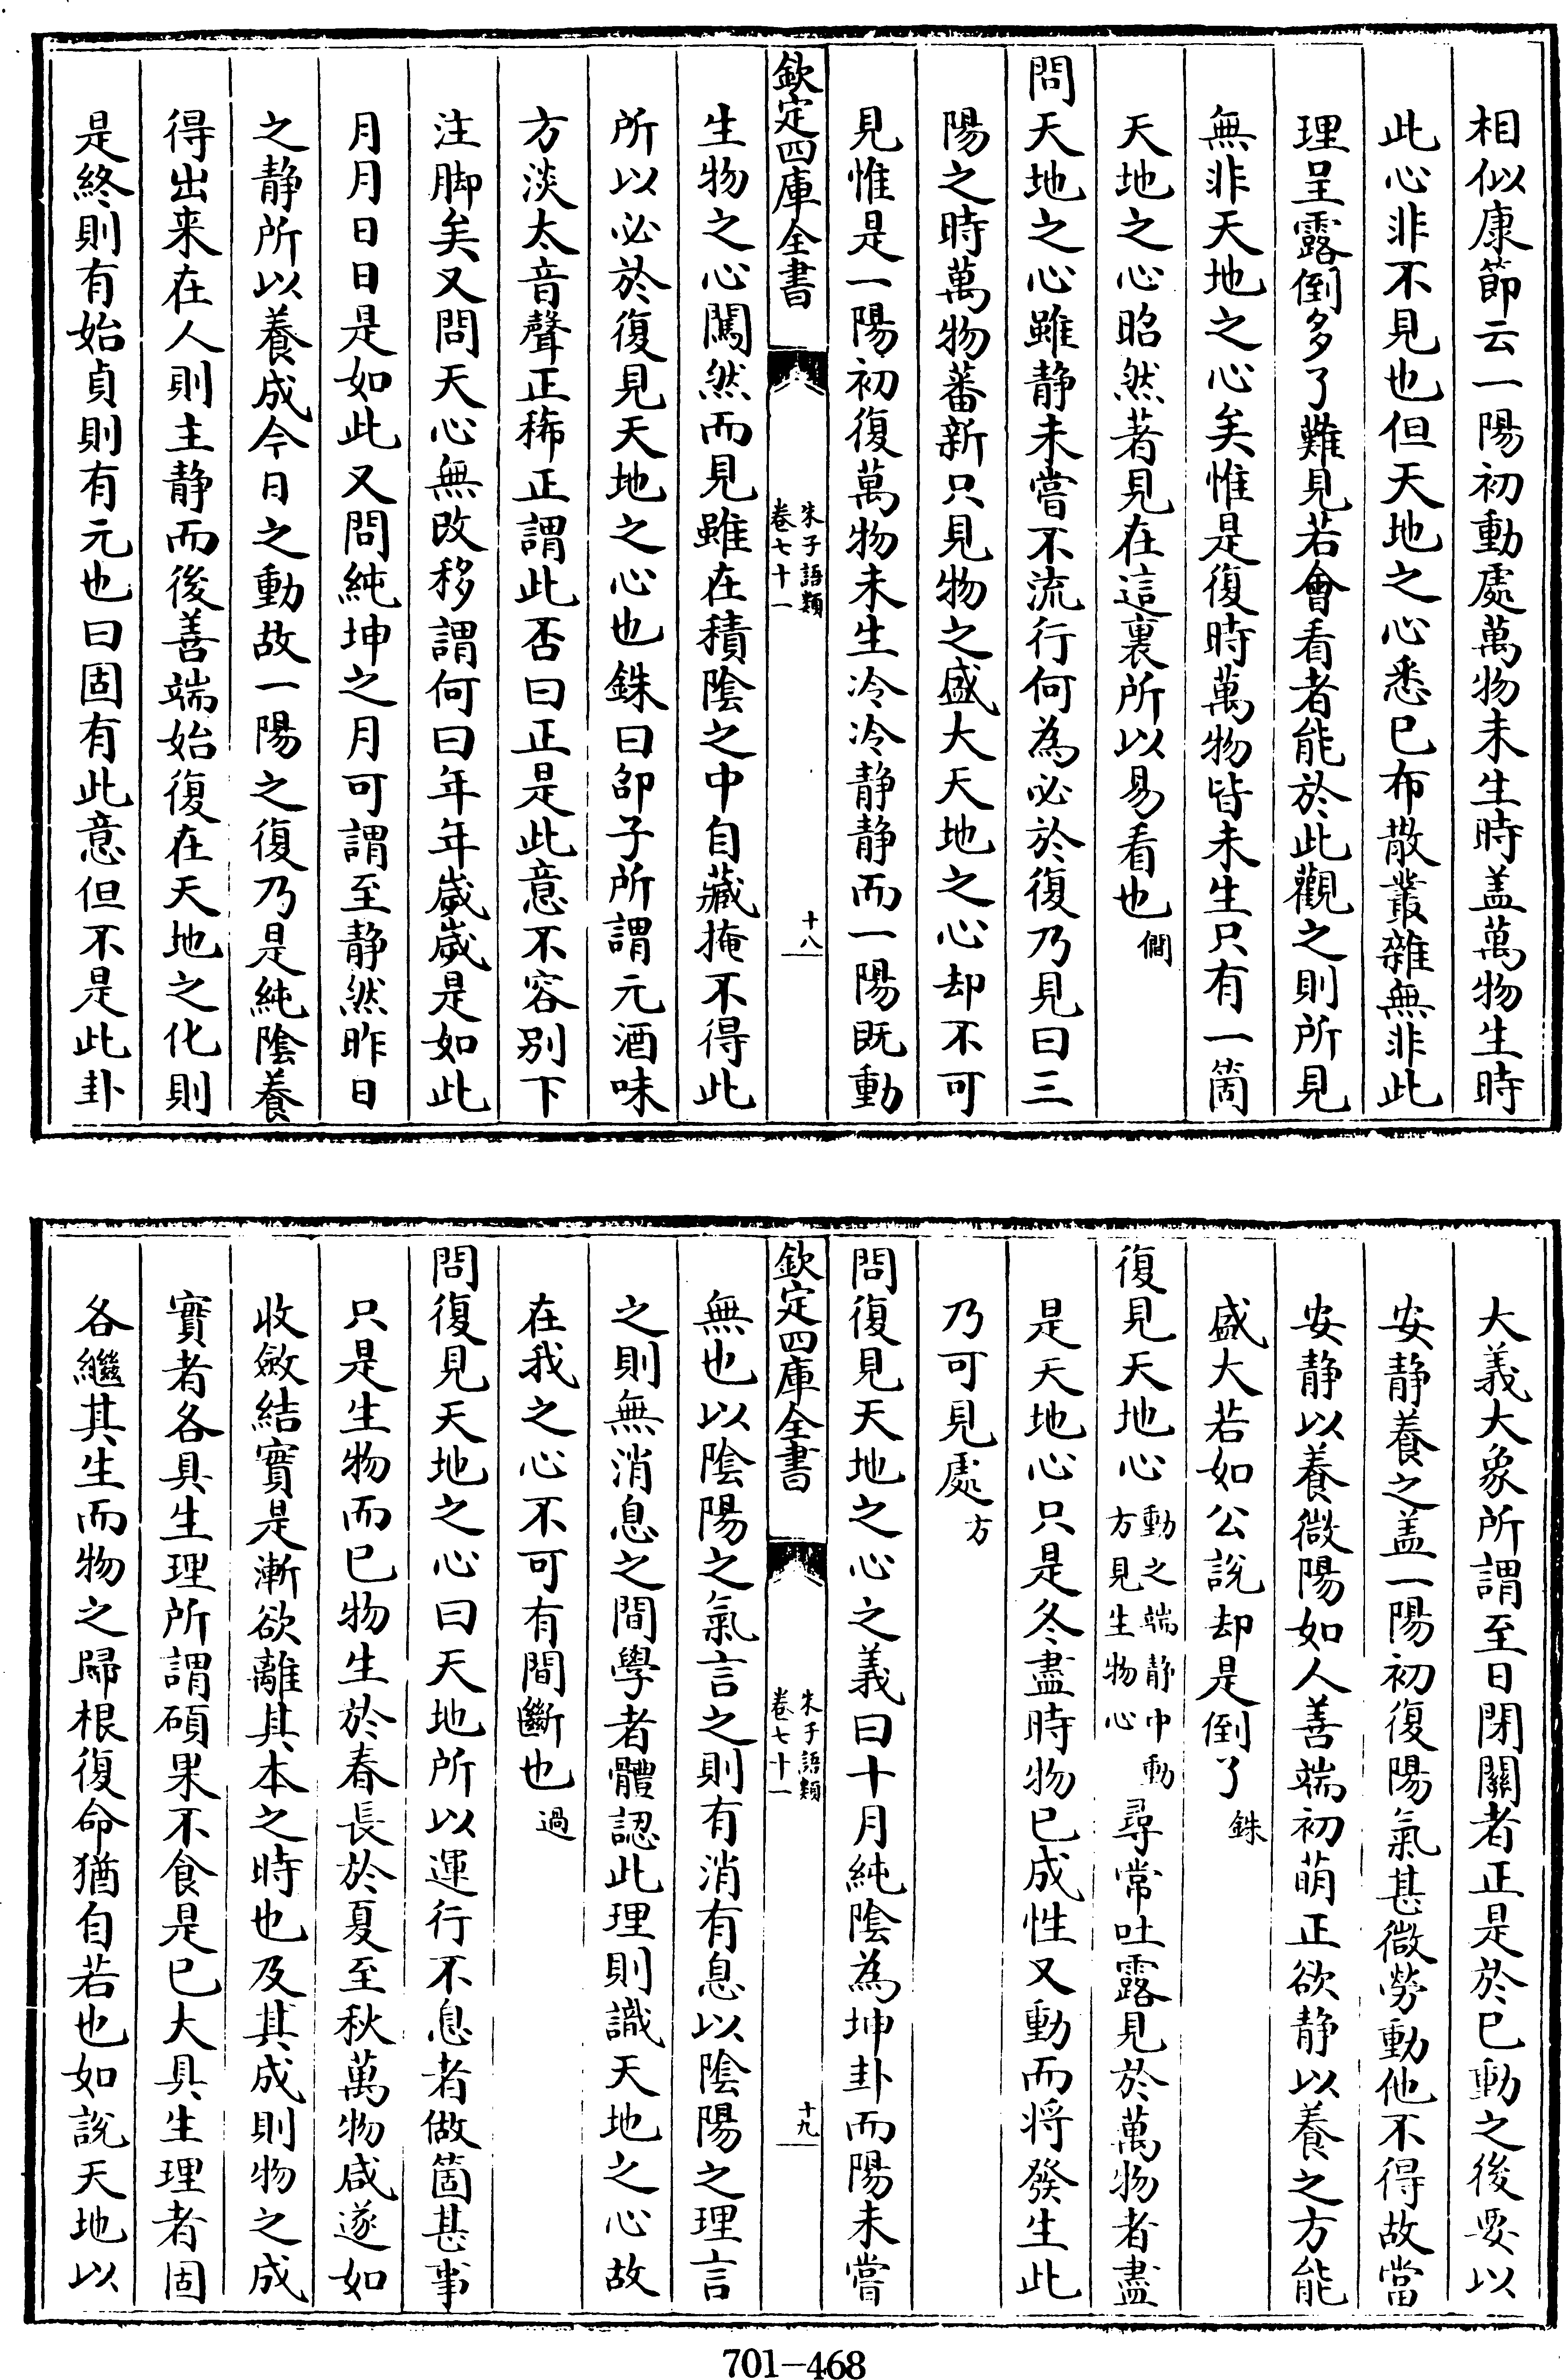 相似康節云一陽初動處萬物未生時盖萬物生時
此心非不見也但天地之心悉已布散叢雜無非此
理呈露倒多了難見若會看者能於此觀之則所見
無非天地之心矣惟是復時萬物皆未生只有一箇
天地之心昭然著見在這裏所以易看也僩
問天地之心雖静未嘗不流行何為必於復乃見曰三
陽之時萬物蕃新只見物之盛大天地之心却不可
見惟是一陽初復萬物未生冷冷静静而一陽既動
欽定四庫全書 朱子語類 卷七十一 十八
生物之心闖然而見雖在積隂之中自藏掩不得此
所以必於復見天地之心也銖曰邵子所謂元酒味
方淡太音聲正稀正謂此否曰正是此意不容别下
注脚矣又問天心無改移謂何曰年年歲歲是如此
月月日日是如此又問純坤之月可謂至静然昨日
之静所以養成今日之動故一陽之復乃是純隂養
得出来在人則主静而後善端始復在天地之化則
是終則有始貞則有元也曰固有此意但不是此卦
大義大象所謂至日閉關者正是於已動之後要以
安静養之盖一陽初復陽氣甚微勞動他不得故當
安静以養微陽如人善端初萌正欲静以養之方能
盛大若如公說却是倒了銖
復見天地心動之端静中動方見生物心尋常吐露見於萬物者盡
是天地心只是冬盡時物已成性又動而将發生此
乃可見處方
問復見天地之心之義曰十月純隂為坤卦而陽未嘗
欽定四庫全書 朱子語類 卷七十一 十九
無也以隂陽之氣言之則有消有息以隂陽之理言
之則無消息之間學者體認此理則識天地之心故
在我之心不可有間斷也過
問復見天地之心曰天地所以運行不息者做箇甚事
只是生物而已物生於春長於夏至秋萬物咸遂如
收斂結實是漸欲離其本之時也及其成則物之成
實者各具生理所謂碩果不食是已大具生理者固
各繼其生而物之歸根復命猶自若也如說天地以
701-468